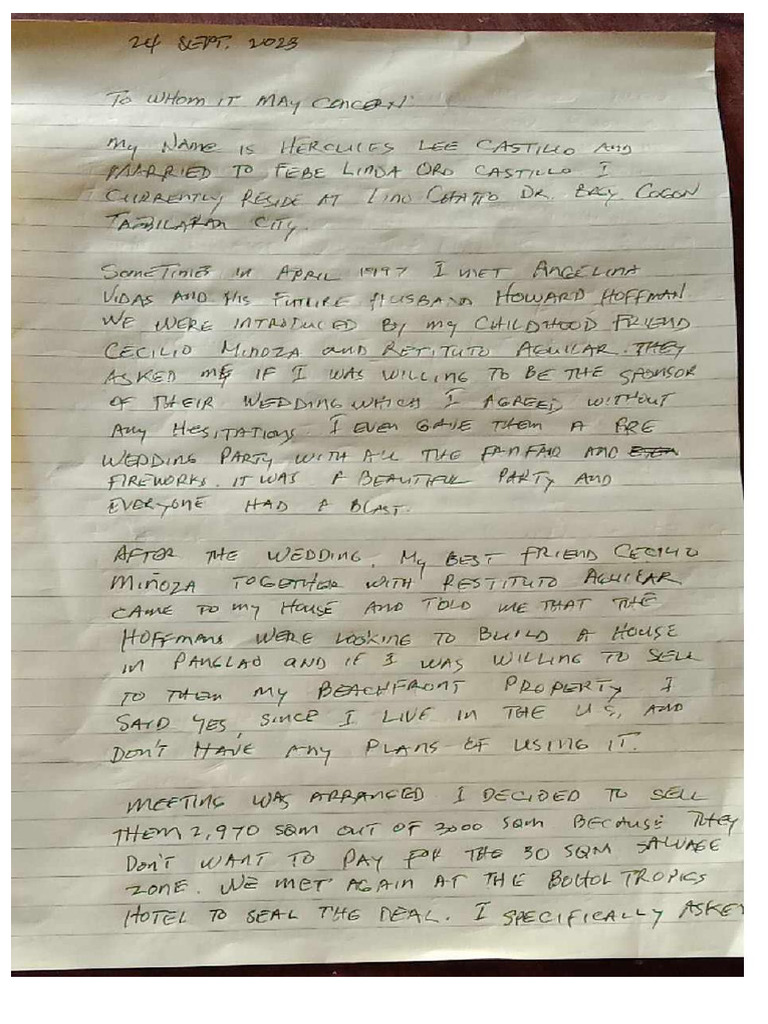 24 SEPT. 2023
TO WHOM IT MAY CONCERN:
MY NAME IS HERCULES LEE CASTILLO AND
MARRIED TO FEBE LINDA ORO CASTILLO I
CURRENTLY RESIDE AT LINO CHATTO DR. BRGY. COGON
TAGBILARAN CITY.
SOMETIMES IN APRIL 1997 I MET ANGELINA
VIDAS AND HIS FUTURE HUSBAND HOWARD HOFFMAN
WE WERE INTRODUCED BY MY CHILDHOOD FRIEND
CECILIO MINOZA AND RETITUTO AGUILAR. THEY
ASKED ME IF I WAS WILLING TO BE THE SPONSOR
OF THEIR WEDDING WHICH I AGREED WITHOUT
ANY HESITATIONS. I EVEN GAVE THEM A PRE
WEDDING PARTY WITH ALL THE FANFAIR AND
FIREWORKS. IT WAS A BEAUTIFUL PARTY AND
EVERYONE HAD A BLAST.
AFTER THE WEDDING, MY BEST FRIEND CECILIO
MIÑOZA TOGETHER WITH RESTITUTO AGUILAR
CAME TO MY HOUSE AND TOLD ME THAT THE
HOFFMANS WERE LOOKING TO BUILD A HOUSE
IN PANGLAO AND IF I WAS WILLING TO SELL
TO THEM MY BEACHFRONT PROPERTY I
SAID YES, SINCE I LIVE IN THE US, AND
DON'T HAVE ANY PLANS OF USING IT.
MEETING WAS ARRANGED I DECIDED TO SELL
THEM 2,970 SQM OUT OF 3000 SQM BECAUSE THEY
DON'T WANT TO PAY FOR THE 30 SQM SALVAGE
ZONE. WE MET AGAIN AT THE BOHOL TROPICS
HOTEL TO SEAL THE DEAL. I SPECIFICALLY ASKED